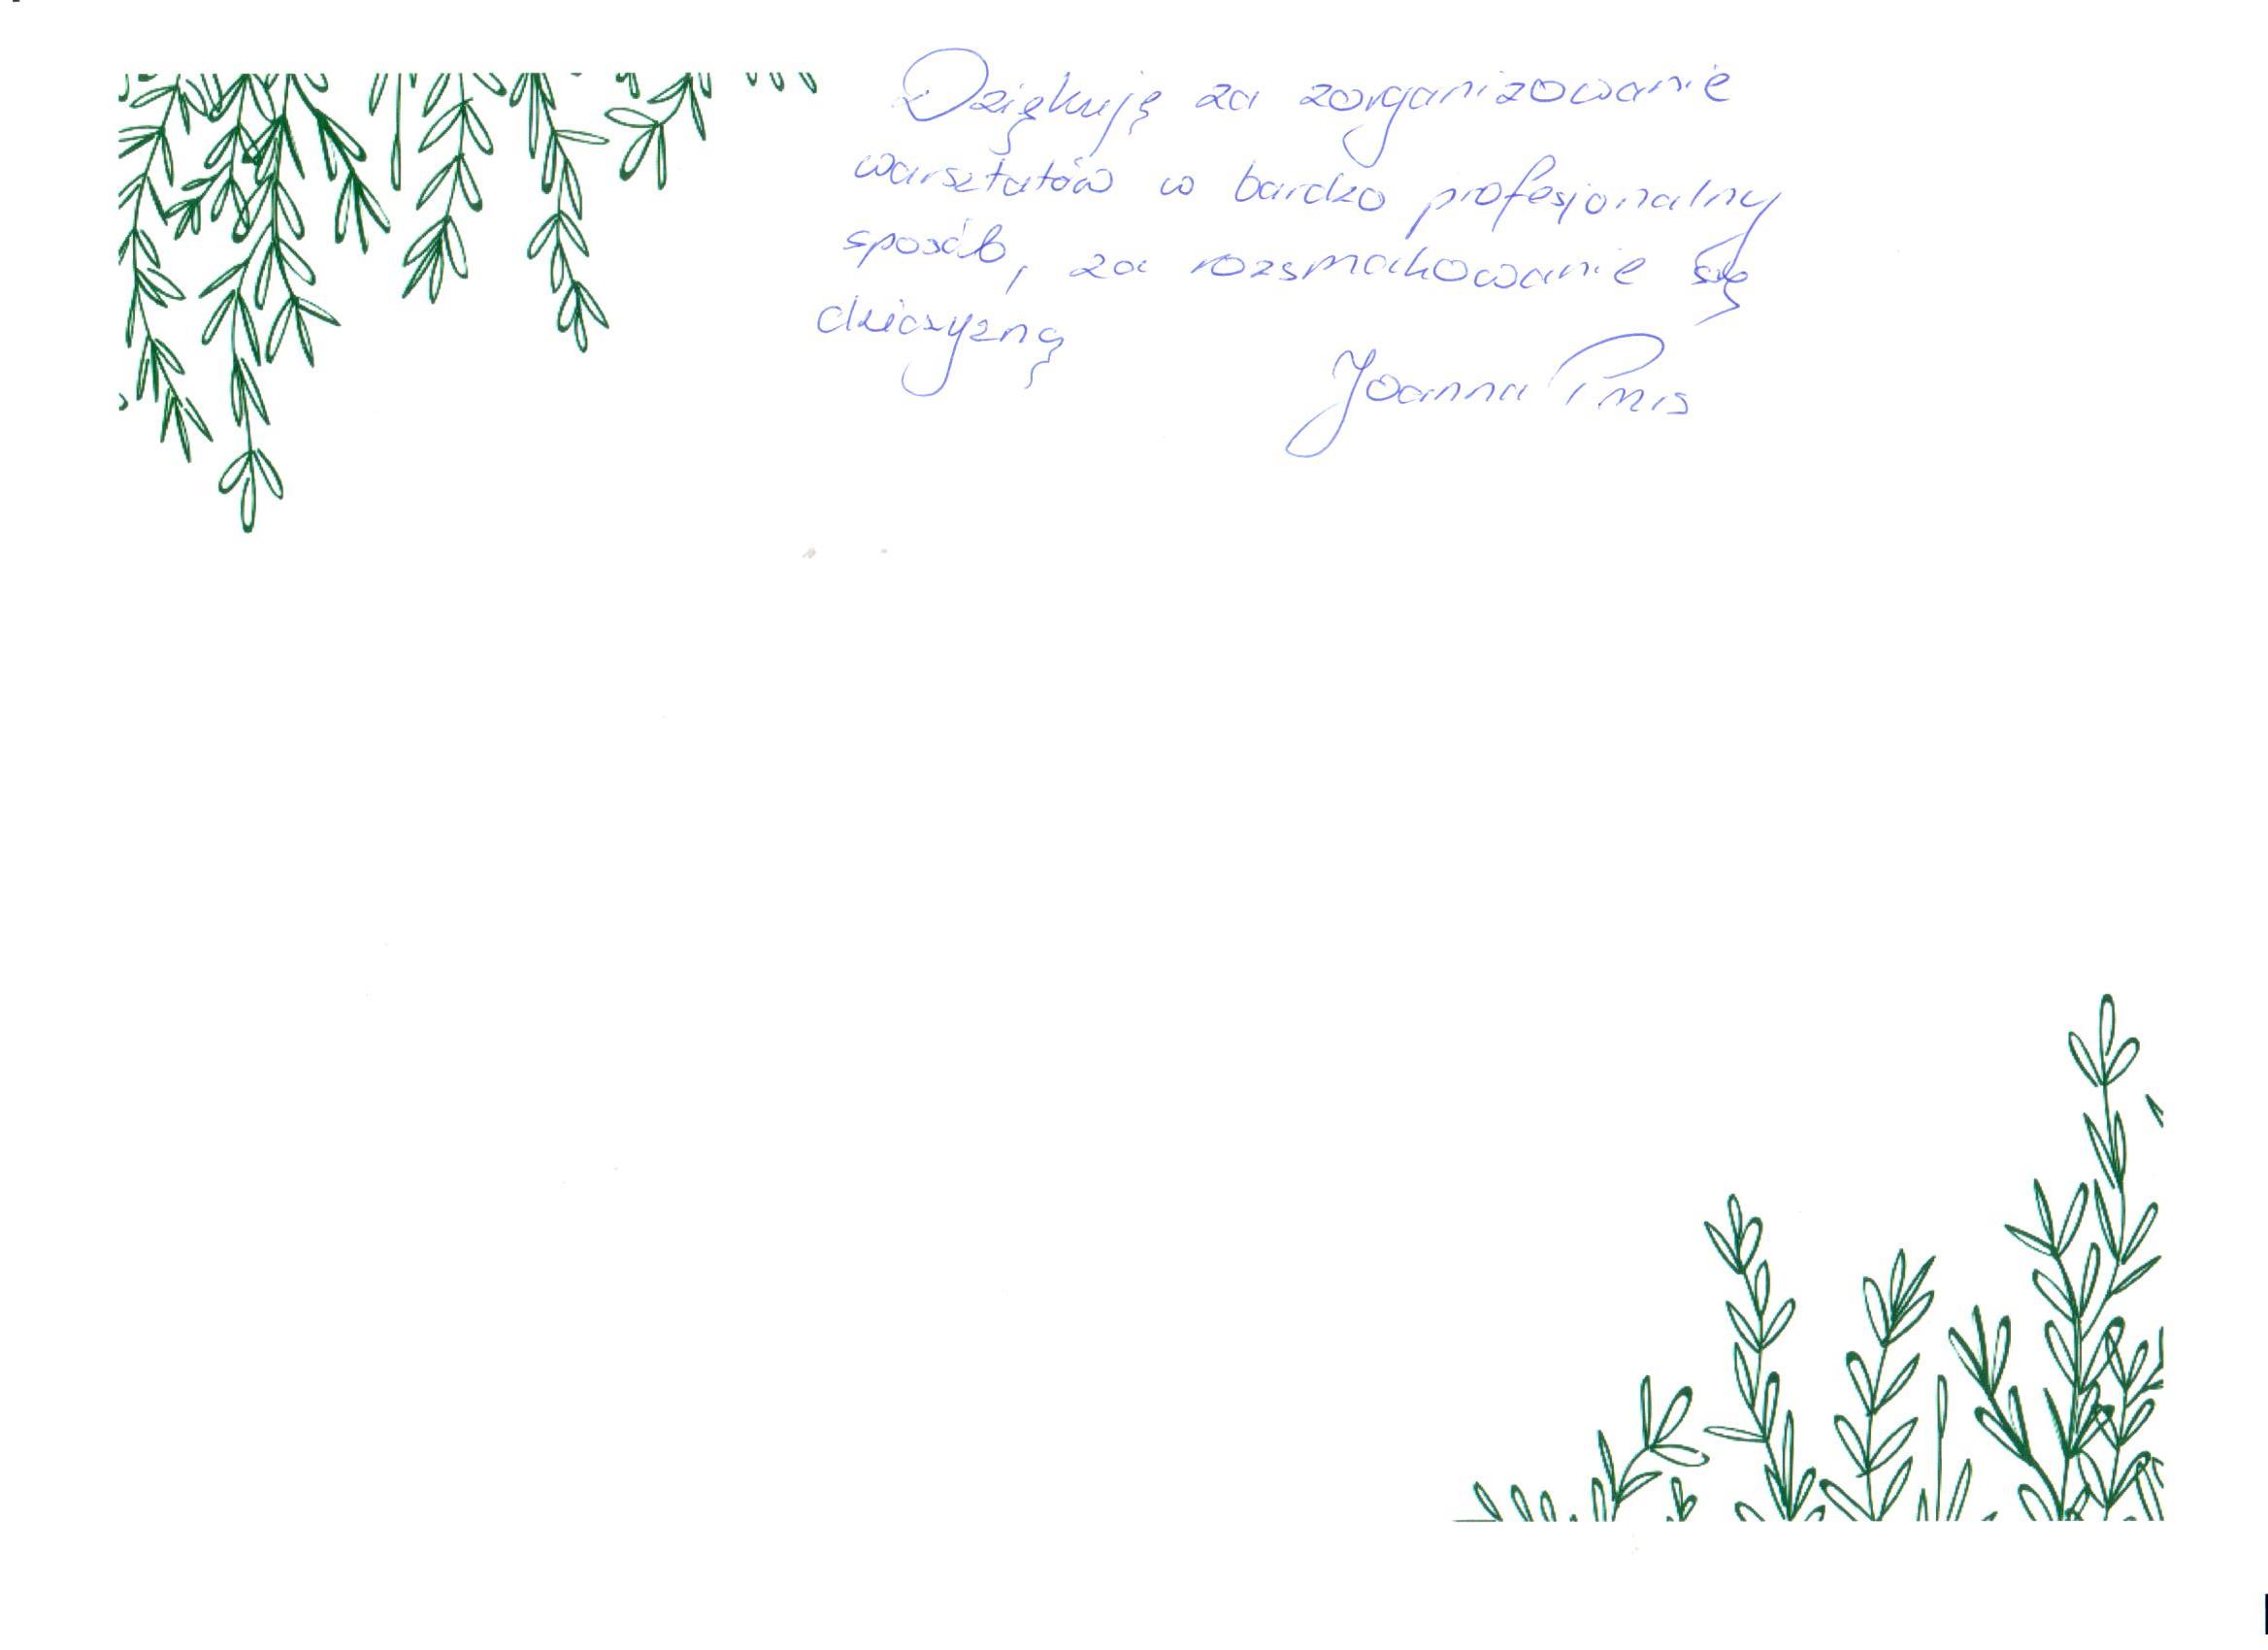 Dziękuję za zorganizowanie
warsztatów w bardzo profesjonalny
sposób, za rozsmakowanie się
dziczyzną
Joanna